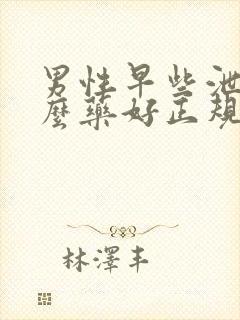 男性早些泄
麼藥好正規
林澤丰